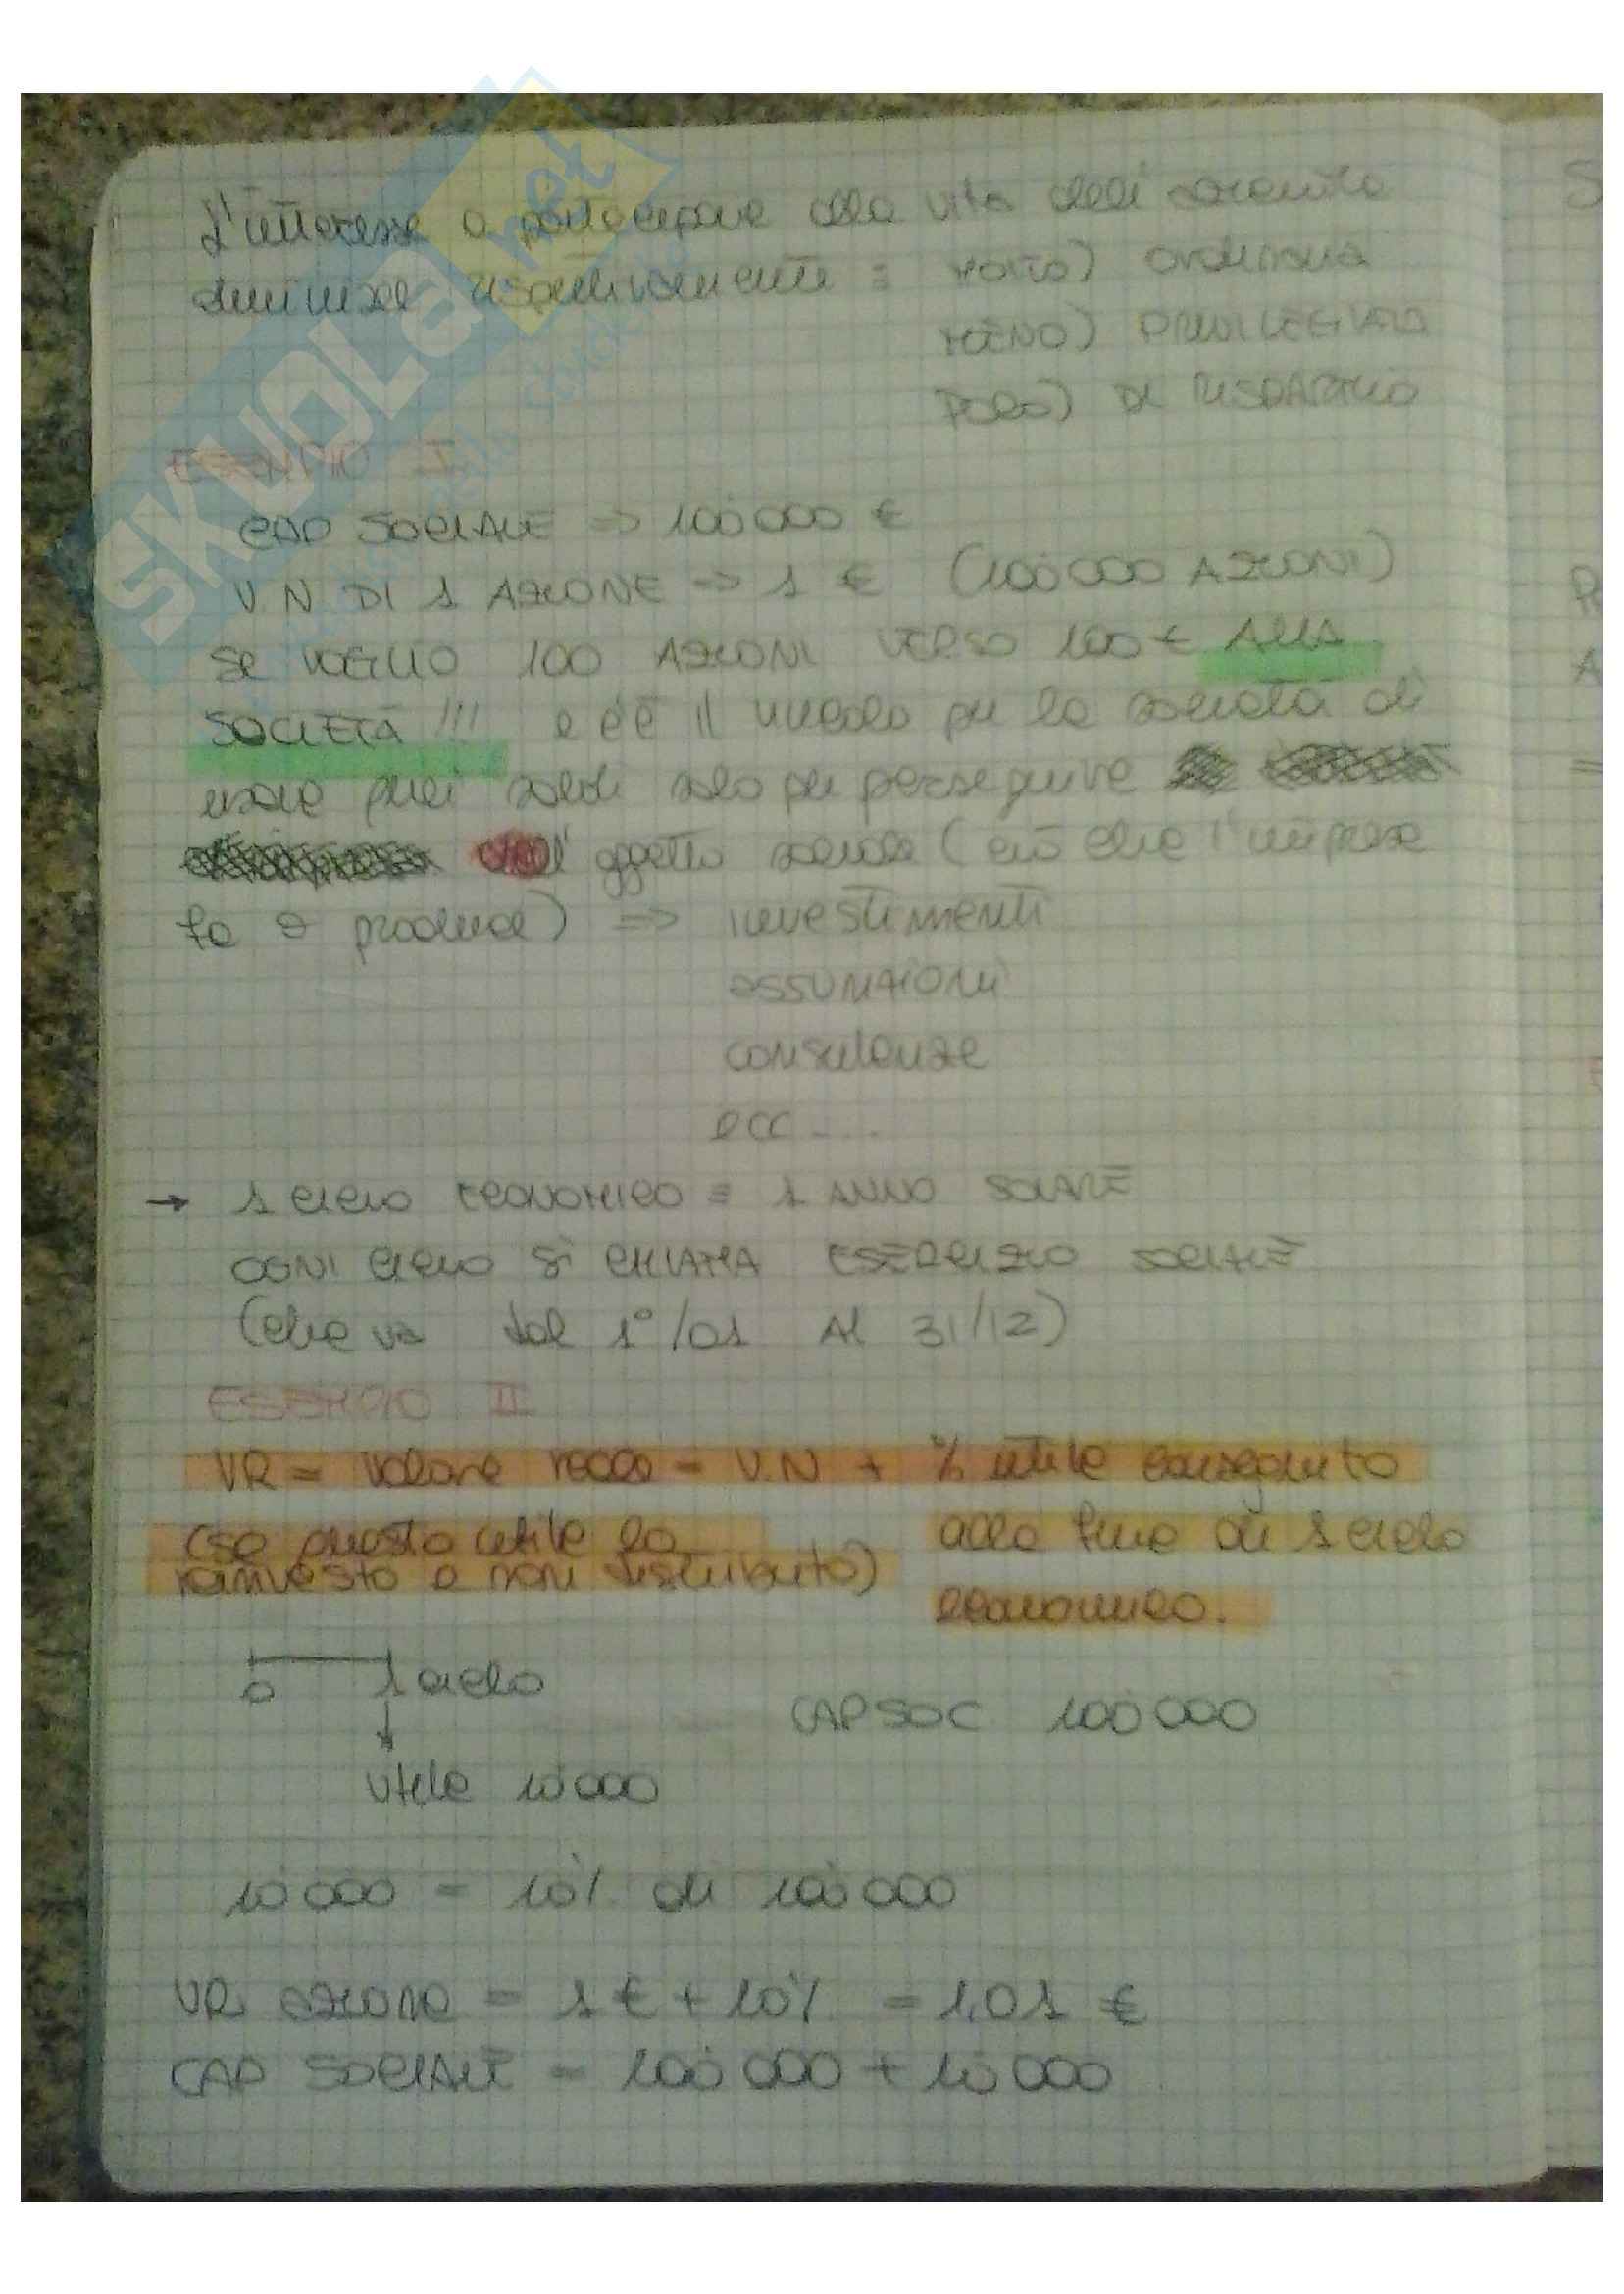 L'interesse a partecipare alla vita dell'azienda
diminuisce rispettivamente: MOLTO) ORDINARIA
MENO) PRIVILEGIATA
POCO) DI RISPARMIO
ESEMPIO I
CAP SOCIALE => 100'000 €
V.N DI 1 AZIONE => 1 € (100'000 AZIONI)
SE VOGLIO 100 AZIONI VERSO 100 € ALLA
SOCIETÀ !!! e c'è il vincolo per la società di
usare quei soldi solo per perseguire
l'oggetto sociale (ciò che l'impresa
fa e produce) => investimenti
assunzioni
consulenze
ecc....
→ 1 CICLO ECONOMICO = 1 ANNO SOLARE
OGNI CICLO SI CHIAMA ESERCIZIO SOCIALE
(che va dal 1°/01 Al 31/12)
ESEMPIO II
VR = valore reale = V.N + % utile conseguito
(se questo utile lo alla fine di 1 ciclo
reinvesto e non distribuito)
economico.
0 1 ciclo
CAP SOC 100'000
utile 10'000
10'000 = 10% di 100'000
VR AZIONE = 1 € + 10% = 1,01 €
CAP SOCIALE = 100'000 + 10'000
SKUOLA.net